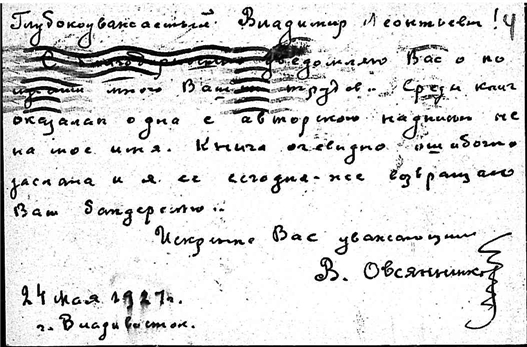 Глубокоуважаемый Владимир Леонтьевич! 4
С благодарностью уведомляю Вас о по
лучении мною Ваших трудов. Среди книг
оказалась одна с авторскою надписью не
на мое имя. Книга очевидно ошибочно
заслана и я ее сегодня-же возвращаю
Вам бандеролью.
Искренне Вас уважающий
В. Овсянников
24 мая 1927 г.
г. Владивосток.